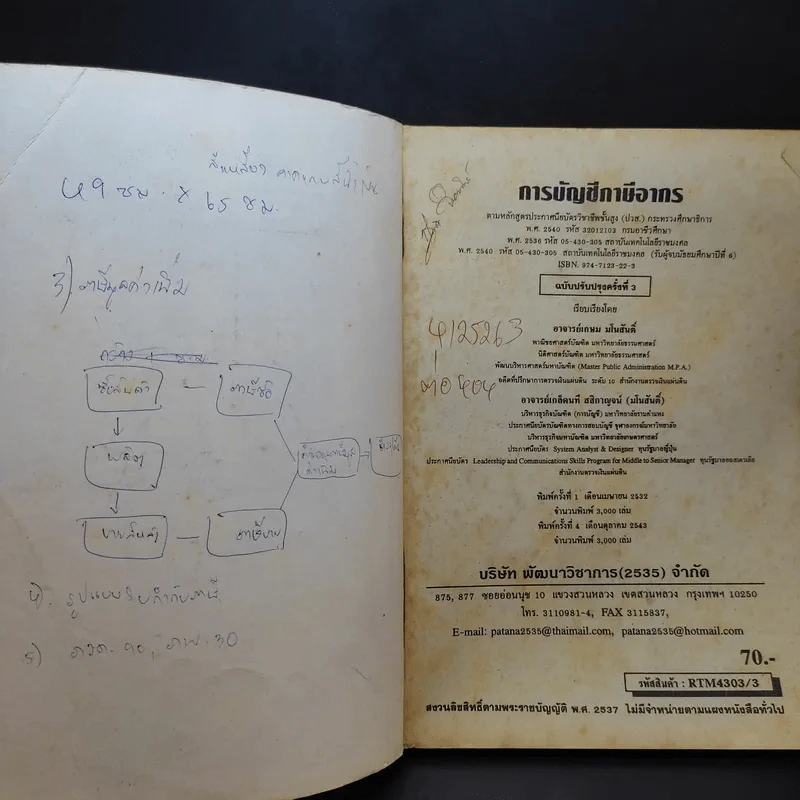 49 ซม. x 65 ซม.
3). ภาษีมูลค่าเพิ่ม
ซื้อสินค้า — ภาษีซื้อ
ผลิต
ขายสินค้า — ภาษีขาย
4). รูปแบบใบกำกับภาษี
5) ภ.พ.30
การบัญชีภาษีอากร
ตามหลักสูตรประกาศนียบัตรวิชาชีพชั้นสูง (ปวส.) กระทรวงศึกษาธิการ
พ.ศ. 2540 รหัส 32012103 กรมอาชีวศึกษา
พ.ศ. 2536 รหัส 05-430-305 สถาบันเทคโนโลยีราชมงคล
พ.ศ. 2540 รหัส 05-430-305 สถาบันเทคโนโลยีราชมงคล (รับผู้จบมัธยมศึกษาปีที่ 6)
ISBN. 974-7123-22-3
ฉบับปรับปรุงครั้งที่ 3
เรียบเรียงโดย
4125263
ต่อ 404
อาจารย์เกษม มโนสันติ์
พาณิชยศาสตร์บัณฑิต มหาวิทยาลัยธรรมศาสตร์
นิติศาสตร์บัณฑิต มหาวิทยาลัยธรรมศาสตร์
พัฒนบริหารศาสตร์มหาบัณฑิต (Master Public Administration M.P.A.)
อดีตที่ปรึกษาการตรวจเงินแผ่นดิน ระดับ 10 สำนักงานตรวจเงินแผ่นดิน
อาจารย์เกล็ดนที สสิกาญจน์ (มโนสันติ์)
บริหารธุรกิจบัณฑิต (การบัญชี) มหาวิทยาลัยรามคำแหง
ประกาศนียบัตรบัณฑิตทางการสอบบัญชี จุฬาลงกรณ์มหาวิทยาลัย
บริหารธุรกิจมหาบัณฑิต มหาวิทยาลัยเกษตรศาสตร์
ประกาศนียบัตร System Analyst & Designer ทุนรัฐบาลญี่ปุ่น
ประกาศนียบัตร Leadership and Communications Skills Program for Middle to Senior Manager ทุนรัฐบาลออสเตรเลีย
สำนักงานตรวจเงินแผ่นดิน
พิมพ์ครั้งที่ 1 เดือนเมษายน 2532
จำนวนพิมพ์ 3,000 เล่ม
พิมพ์ครั้งที่ 4 เดือนตุลาคม 2543
จำนวนพิมพ์ 3,000 เล่ม
บริษัท พัฒนาวิชาการ(2535) จำกัด
875, 877 ซอยอ่อนนุช 10 แขวงสวนหลวง เขตสวนหลวง กรุงเทพฯ 10250
โทร. 3110981-4, FAX 3115837,
E-mail: patana2535@thaimail.com, patana2535@hotmail.com
70.-
รหัสสินค้า : RTM4303/3
สงวนลิขสิทธิ์ตามพระราชบัญญัติ พ.ศ. 2537 ไม่มีจำหน่ายตามแผงหนังสือทั่วไป